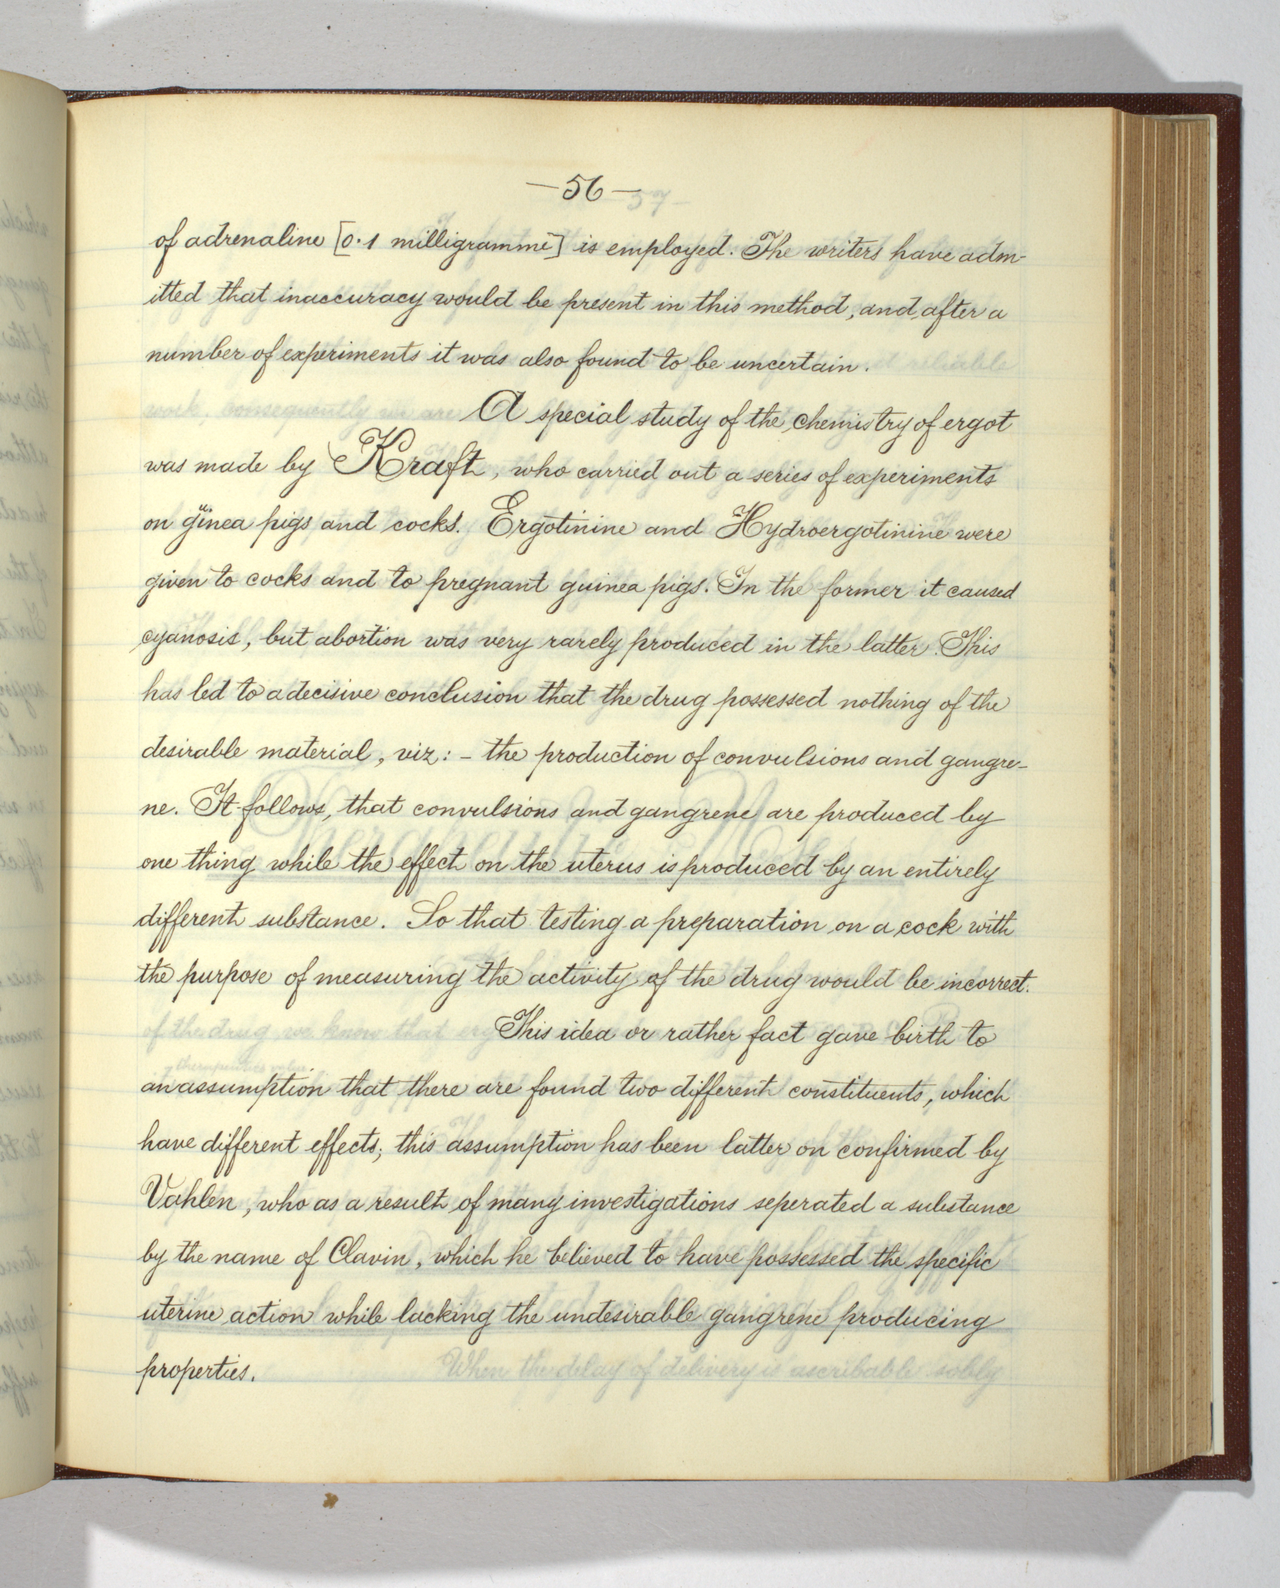 —56—
of adrenaline [0·1 milligramme] is employed. The writers have adm-
itted that inaccuracy would be present in this method, and after a
number of experiments it was also found to be uncertain.
A special study of the chemistry of ergot
was made by Kraft, who carried out a series of experiments
on guinea pigs and cocks. Ergotinine and Hydroergotinine were
given to cocks and to pregnant guinea pigs. In the former it caused
cyanosis, but abortion was very rarely produced in the latter. This
has led to a decisive conclusion that the drug possessed nothing of the
desirable material, viz:– the production of convulsions and gangre-
ne. It follows, that convulsions and gangrene are produced by
one thing while the effect on the uterus is produced by an entirely
different substance. So that testing a preparation on a cock with
the purpose of measuring the activity of the drug would be incorrect.
This idea or rather fact gave birth to
an assumption that there are found two different constituents, which
have different effects; this assumption has been latter on confirmed by
Vahlen, who as a result of many investigations seperated a substance
by the name of Clavin, which he believed to have possessed the specific
uterine action while lacking the undesirable gangrene producing
properties.